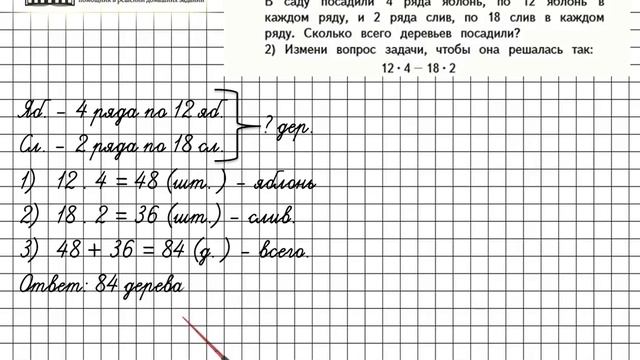 помощник в решении домашних заданий
В саду посадили 4 ряда яблонь, по 12 яблонь в
каждом ряду, и 2 ряда слив, по 18 слив в каждом
ряду. Сколько всего деревьев посадили?
2) Измени вопрос задачи, чтобы она решалась так:
12 · 4 − 18 · 2
Яб. – 4 ряда по 12 яб.
? дер.
Сл. – 2 ряда по 18 сл.
1) 12 . 4 = 48 (шт. ) – яблонь
2) 18 . 2 = 36 (шт.) – слив.
3) 48 + 36 = 84 (д. ) – всего.
Ответ: 84 дерева